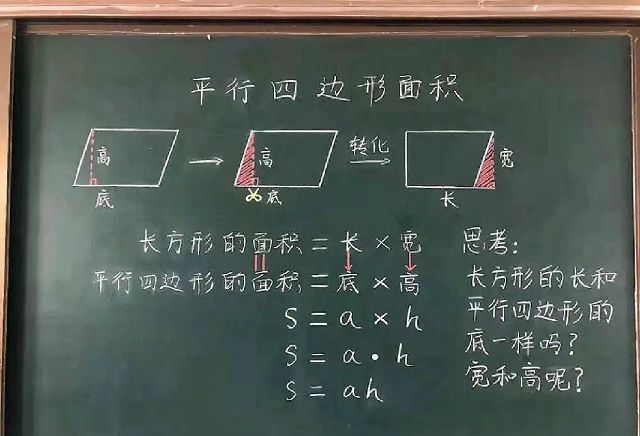 平行四边形面积
高
底
高
底
转化
宽
长
长方形的面积=长×宽
平行四边形的面积=底×高
S=a×h
S=a·h
S=ah
思考:
长方形的长和
平行四边形的
底一样吗?
宽和高呢?